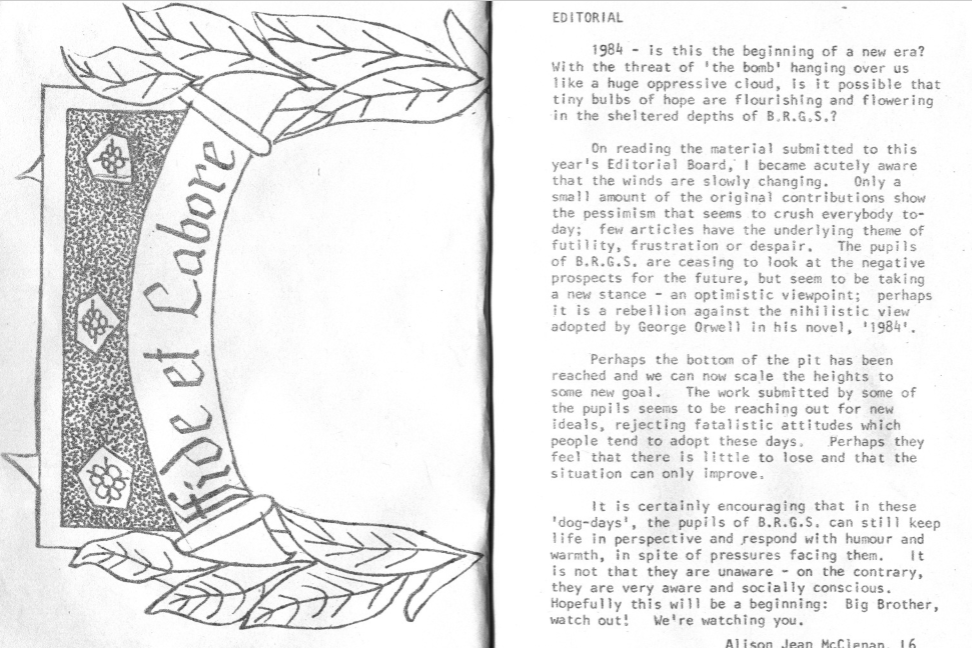 Fide et Labore
EDITORIAL
1984 - is this the beginning of a new era?
With the threat of 'the bomb' hanging over us
like a huge oppressive cloud, is it possible that
tiny bulbs of hope are flourishing and flowering
in the sheltered depths of B.R.G.S.?
On reading the material submitted to this
year's Editorial Board, I became acutely aware
that the winds are slowly changing. Only a
small amount of the original contributions show
the pessimism that seems to crush everybody to-
day; few articles have the underlying theme of
futility, frustration or despair. The pupils
of B.R.G.S. are ceasing to look at the negative
prospects for the future, but seem to be taking
a new stance - an optimistic viewpoint; perhaps
it is a rebellion against the nihilistic view
adopted by George Orwell in his novel, '1984'.
Perhaps the bottom of the pit has been
reached and we can now scale the heights to
some new goal. The work submitted by some of
the pupils seems to be reaching out for new
ideals, rejecting fatalistic attitudes which
people tend to adopt these days. Perhaps they
feel that there is little to lose and that the
situation can only improve.
It is certainly encouraging that in these
'dog-days', the pupils of B.R.G.S. can still keep
life in perspective and respond with humour and
warmth, in spite of pressures facing them. It
is not that they are unaware - on the contrary,
they are very aware and socially conscious.
Hopefully this will be a beginning: Big Brother,
watch out! We're watching you.
Alison Jean McClenan, 16